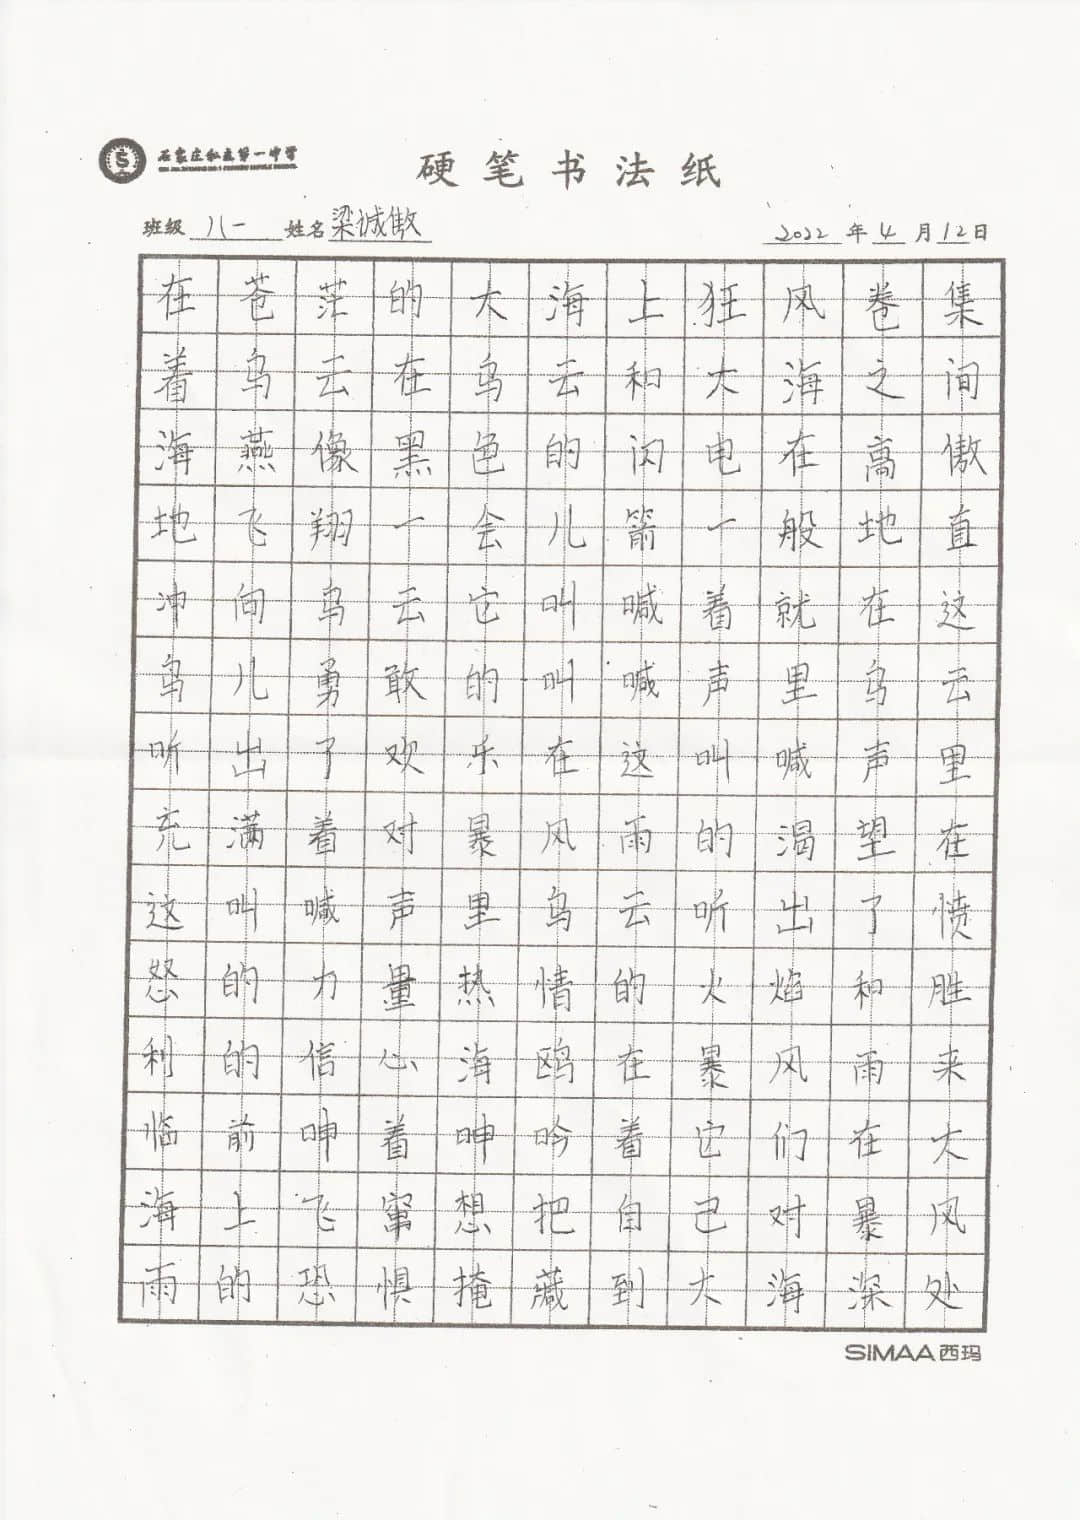 石家庄私立第一中学
硬笔书法纸
班级 八一 姓名 梁诚傲 2022 年 4 月 12 日
在苍茫的大海上狂风卷集
着乌云在乌云和大海之间
海燕像黑色的闪电在高傲
地飞翔一会儿箭一般地直
冲向乌云它叫喊着就在这
鸟儿勇敢的叫喊声里乌云
听出了欢乐在这叫喊声里
充满着对暴风雨的渴望在
这叫喊声里乌云听出了愤
怒的力量热情的火焰和胜
利的信心海鸥在暴风雨来
临前呻着呻吟着它们在大
海上飞窜想把自己对暴风
雨的恐惧掩藏到大海深处
SIMAA西玛